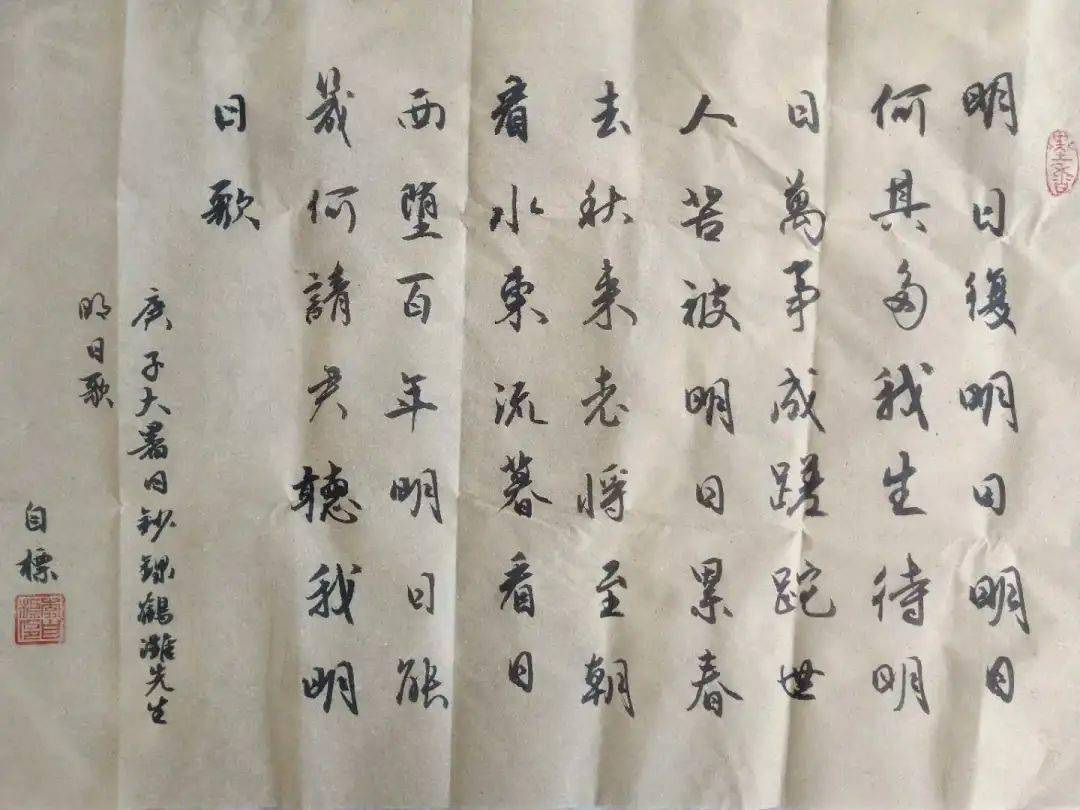 明日復明日明日
何其多我生待明
日萬事成蹉跎世
人苦被明日累春
去秋来老將至朝
看水東流暮看日
西堕百年明日能
幾何請君聽我明
日歌
庚子大暑日鈔錄鶴灘先生
明日歌
自標
墨香